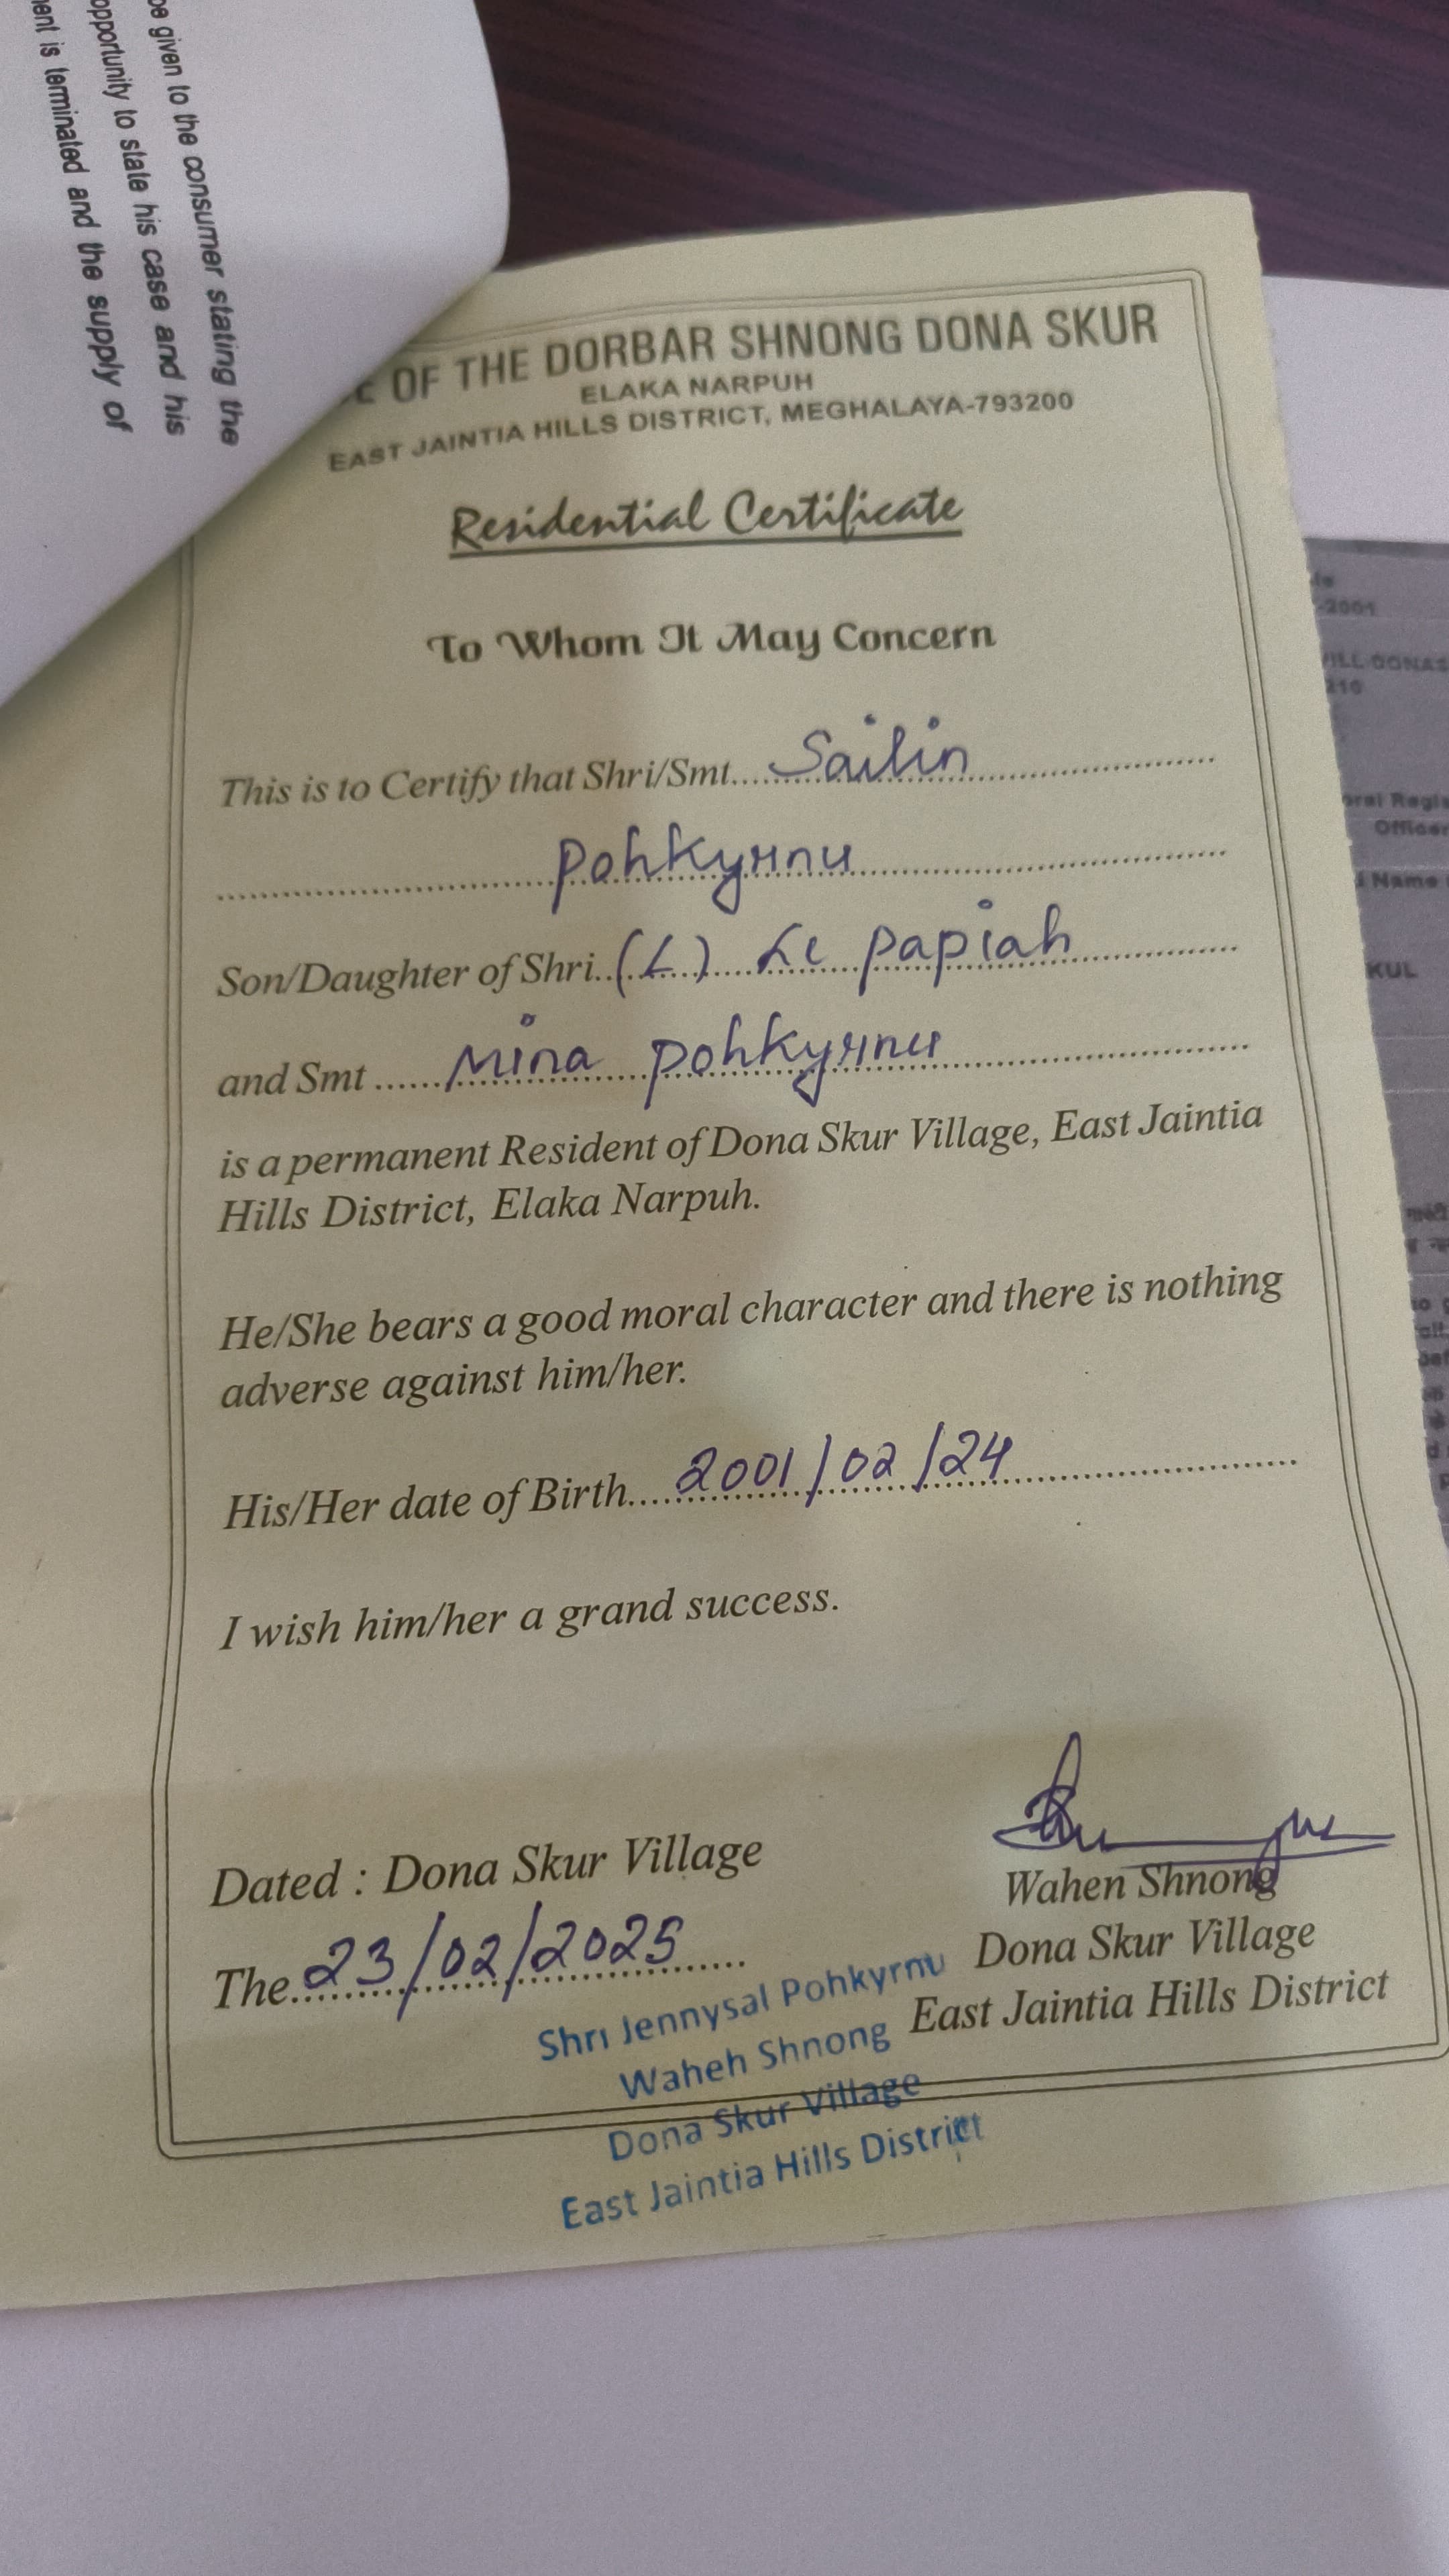 be given to the consumer stating the
opportunity to state his case and his
is terminated and the supply of
OF THE DORBAR SHNONG DONA SKUR
ELAKA NARPUH
EAST JAINTIA HILLS DISTRICT, MEGHALAYA-793200
Residential Certificate
To Whom It May Concern
This is to Certify that Shri/Smt....Sailin
Pohkyrnu
Son/Daughter of Shri..(L) Le papiah
and Smt ......Mina pohkyrnu
is a permanent Resident of Dona Skur Village, East Jaintia
Hills District, Elaka Narpuh.
He/She bears a good moral character and there is nothing
adverse against him/her.
His/Her date of Birth....2001/02/24
I wish him/her a grand success.
Dated : Dona Skur Village
The..23/02/2025
Wahen Shnong
Dona Skur Village
East Jaintia Hills District
Shri Jennysal Pohkyrnu
Waheh Shnong
Dona Skur Village
East Jaintia Hills District
-2001
Name
KUL